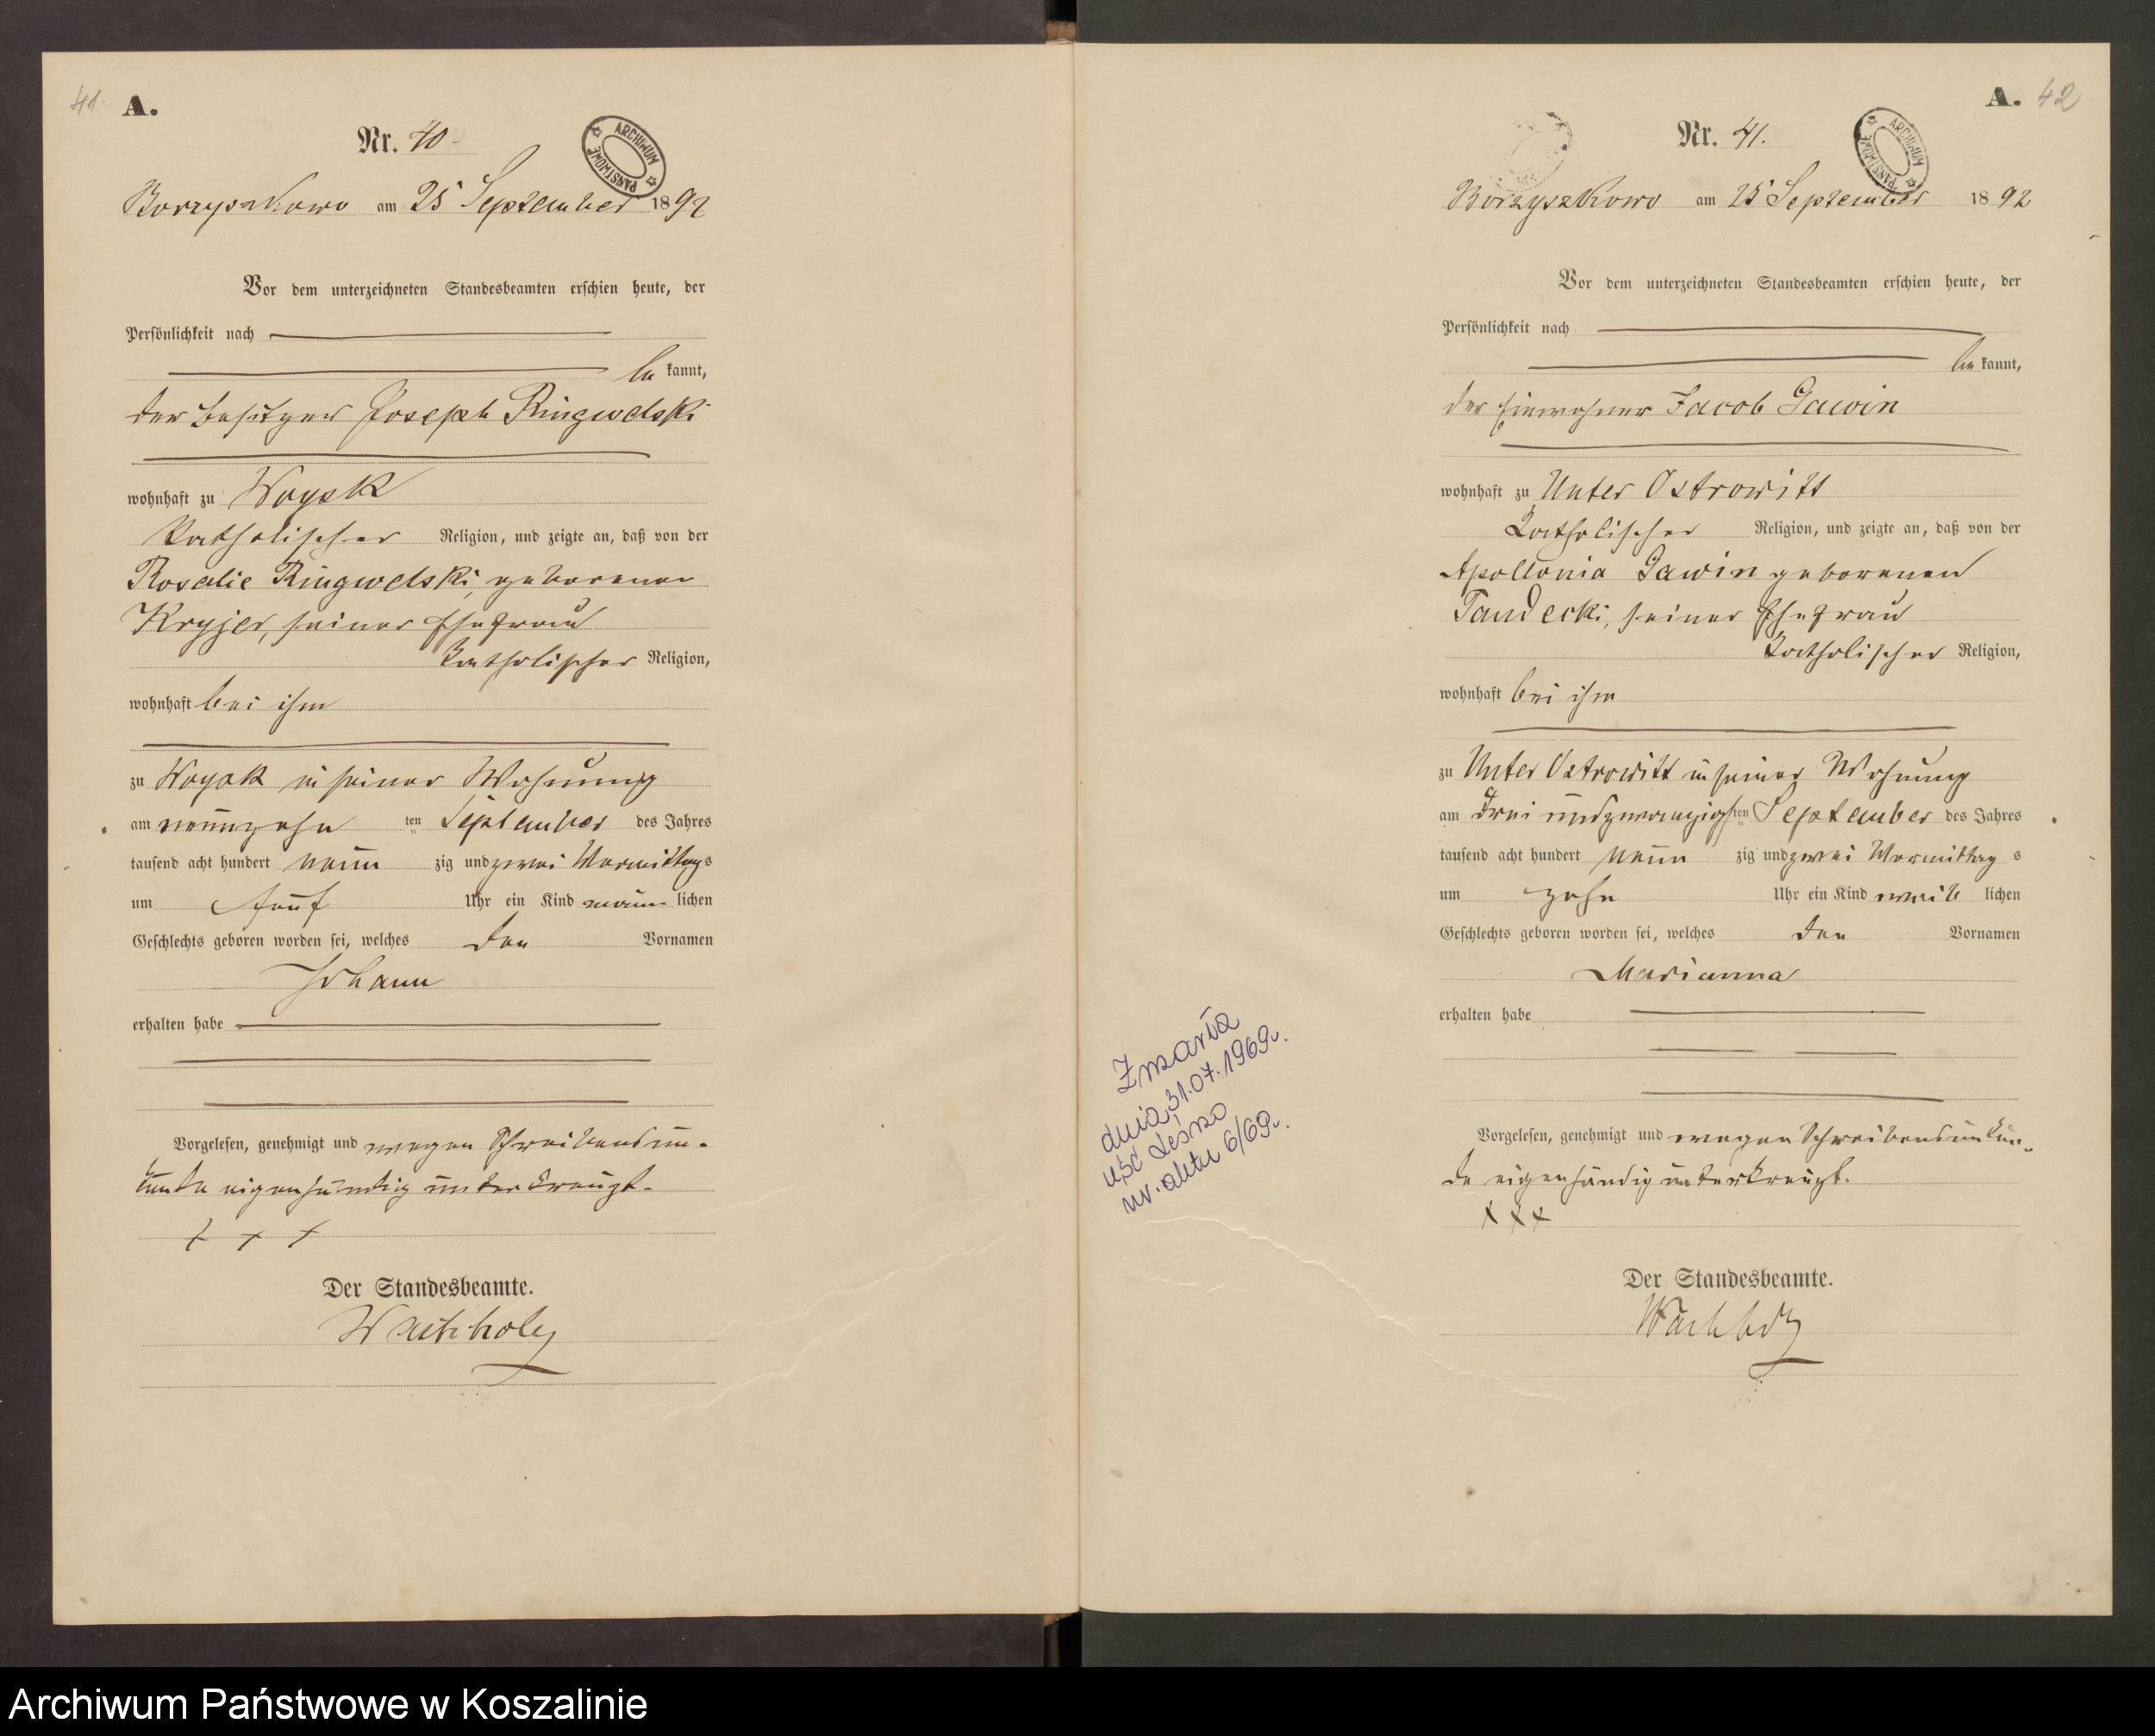 41 A.
Nr. 40
ARCHIWUM PAŃSTWOWE
Borzyszkowo am 25 September 1892
Vor dem unterzeichneten Standesbeamten erschien heute, der
Persönlichkeit nach
be kannt,
der Besitzer Joseph Ringwelski
wohnhaft zu Woysk
katholischer Religion, und zeigte an, daß von der
Rosalie Ringwelski, geborenen
Kryjer, seiner Ehefrau
katholischer Religion,
wohnhaft bei ihm
zu Woysk in seiner Wohnung
am neunzehn ten September des Jahres
tausend acht hundert neun zig und zwei Vormittags
um fünf Uhr ein Kind männ lichen
Geschlechts geboren worden sei, welches den Vornamen
Johann
erhalten habe
Vorgelesen, genehmigt und wegen Schreibensun-
kunde eigenhändig unterkreuzt.
+ + +
Der Standesbeamte.
Wachholz
A. 42
Nr. 41.
ARCHIWUM PAŃSTWOWE
Borzyszkowo am 25 September 1892
Vor dem unterzeichneten Standesbeamten erschien heute, der
Persönlichkeit nach
be kannt,
der Einwohner Jacob Gawin
wohnhaft zu Unter Ostrowitt
katholischer Religion, und zeigte an, daß von der
Apollonia Gawin geborenen
Tandecki, seiner Ehefrau
katholischer Religion,
wohnhaft bei ihm
zu Unter Ostrowitt in seiner Wohnung
am drei und zwanzigsten September des Jahres
tausend acht hundert neun zig und zwei Vormittag s
um zehn Uhr ein Kind weib lichen
Geschlechts geboren worden sei, welches den Vornamen
Marianna
erhalten habe
Zmarła
dnia 31.07.1969r.
USC Leśno
nr. aktu 6/69r.
Vorgelesen, genehmigt und wegen Schreibensunkun-
de eigenhändig unterkreuzt.
x x x
Der Standesbeamte.
Wachholz
Archiwum Państwowe w Koszalinie